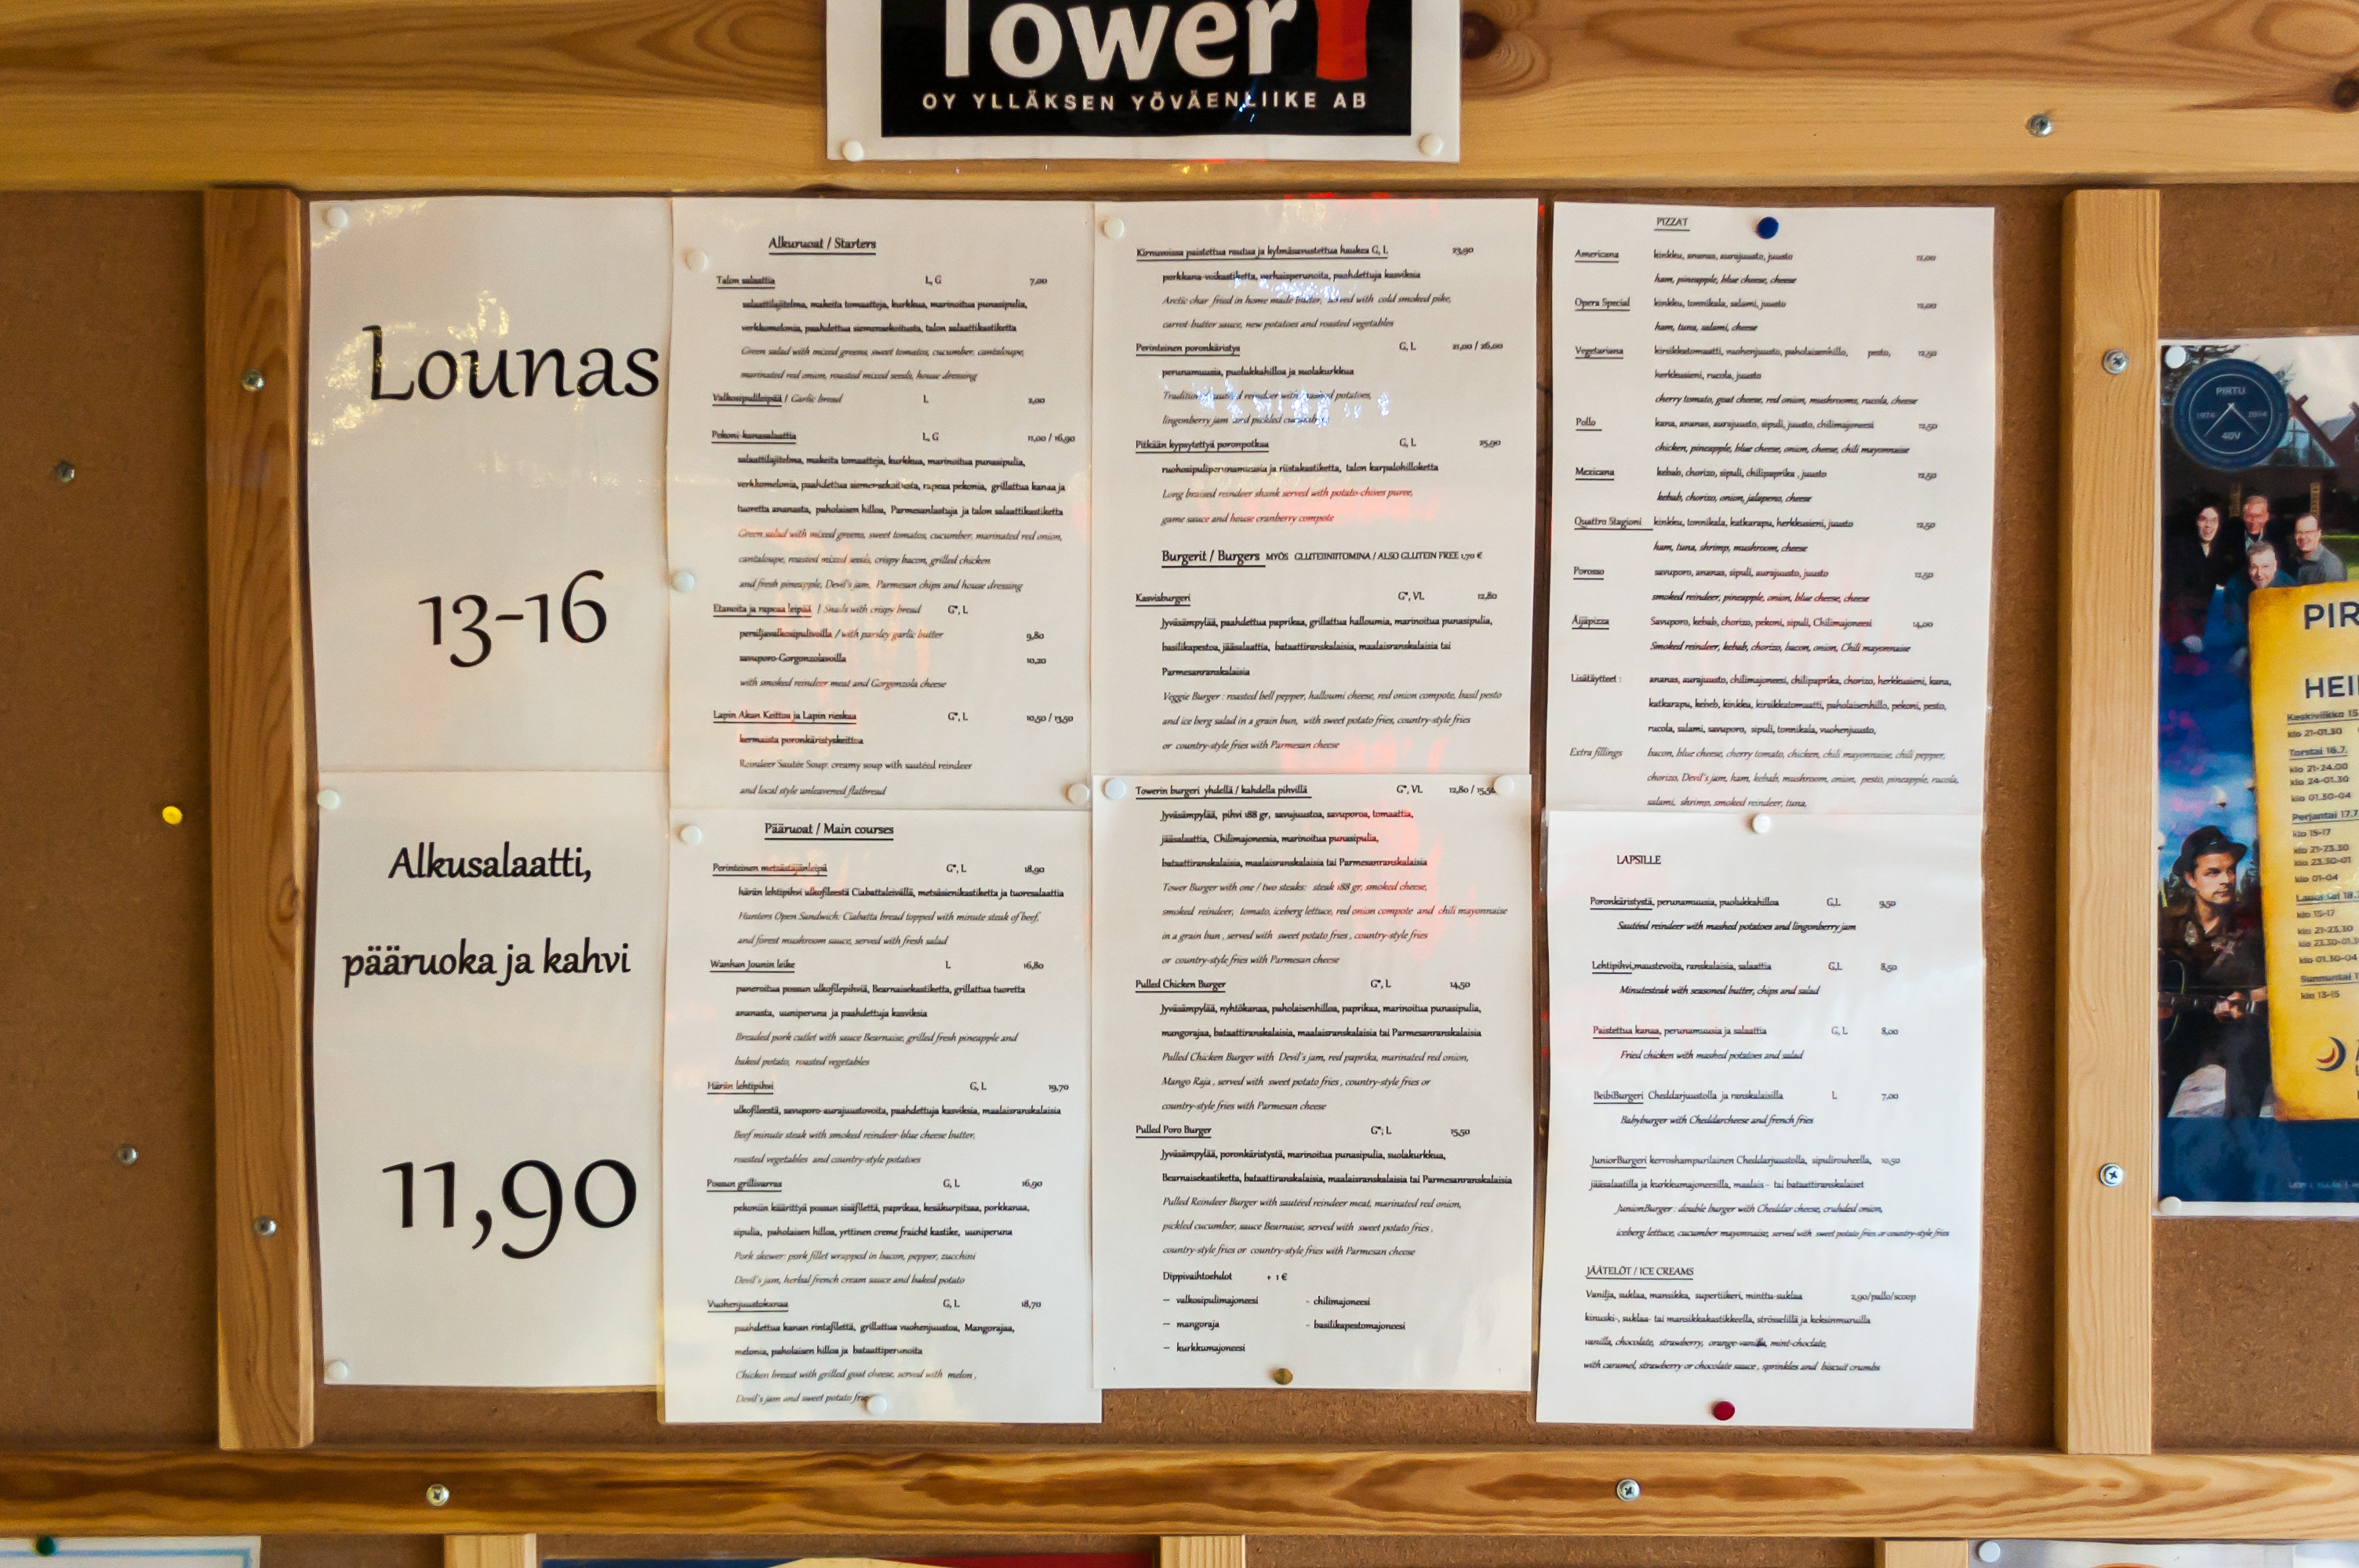 Tower
OY YLLÄKSEN YÖVÄENLIIKE AB
Lounas
13-16
Alkusalaatti,
pääruoka ja kahvi
11,90
Alkuruoat / Starters
Talon salaattia L, G 7,00
salaattilajitelma, makeita tomaatteja, kurkkua, marinoitua punasipulia,
verkkomelonia, paahdettua siemensekoitusta, talon salaattikastiketta
Green salad with mixed greens, sweet tomatos, cucumber, cantaloupe,
marinated red onion, roasted mixed seeds, house dressing
Valkosipulileipää / Garlic bread L 2,00
Pekoni-kanasalaattia L, G 11,00 / 16,90
salaattilajitelma, makeita tomaatteja, kurkkua, marinoitua punasipulia,
verkkomelonia, paahdettua siemensekoitusta, rapeaa pekonia, grillattua kanaa ja
tuoretta ananasta, paholaisen hilloa, Parmesanlastuja ja talon salaattikastiketta
Green salad with mixed greens, sweet tomatos, cucumber, marinated red onion,
cantaloupe, roasted mixed seeds, crispy bacon, grilled chicken
and fresh pineapple, Devil's jam, Parmesan chips and house dressing
Etanoita ja rapeaa leipää / Snails with crispy bread G*, L
persiljavalkosipulivoilla / with parsley garlic butter 9,80
savuporo-Gorgonzolavoilla 10,20
with smoked reindeer meat and Gorgonzola cheese
Lapin Akan Keittoa ja Lapin rieskaa G*, L 10,50 / 13,50
kermaista poronkäristyskeittoa
Reindeer Sautée Soup: creamy soup with sautéed reindeer
and local style unleavened flatbread
Pääruoat / Main courses
Perinteinen metsästäjänleipä G*, L 18,90
härän lehtipihvi ulkofileestä Ciabattaleivällä, metsäsienikastiketta ja tuoresalaattia
Hunters Open Sandwich: Ciabatta bread topped with minute steak of beef,
and forest mushroom sauce, served with fresh salad
Wanhan Jounin leike L 16,80
paneroitua possun ulkofilepihviä, Bearnaisekastiketta, grillattua tuoretta
ananasta, uuniperuna ja paahdettuja kasviksia
Breaded pork cutlet with sauce Bearnaise, grilled fresh pineapple and
baked potato, roasted vegetables
Härän lehtipihvi G, L 19,70
ulkofileestä, savuporo-aurajuustovoita, paahdettuja kasviksia, maalaisranskalaisia
Beef minute steak with smoked reindeer-blue cheese butter,
roasted vegetables and country-style potatoes
Possun grillivarras G, L 16,90
pekoniin käärittyä possun sisäfilettä, paprikaa, kesäkurpitsaa, porkkanaa,
sipulia, paholaisen hilloa, yrttinen creme fraiché kastike, uuniperuna
Pork skewer: pork fillet wrapped in bacon, pepper, zucchini
Devil's jam, herbal french cream sauce and baked potato
Vuohenjuustokanaa G, L 18,70
paahdettua kanan rintafilettä, grillattua vuohenjuustoa, Mangorajaa,
melonia, paholaisen hilloa ja bataattiperunoita
Chicken breast with grilled goat cheese, served with melon ,
Devil's jam and sweet potato
Kirnuvoissa paistettua rautua ja kylmäsavustettua haukea G, L 23,90
porkkana-voikastiketta, varhaisperunoita, paahdettuja kasviksia
Arctic char fried in home made butter, served with cold smoked pike,
carrot-butter sauce, new potatoes and roasted vegetables
Perinteinen poronkäristys G, L 21,00 / 26,00
perunamuusia, puolukkahilloa ja suolakurkkua
Traditional sautéed reindeer with mashed potatoes,
lingonberry jam and pickled cucumber
Pitkään kypsytettyä poronpotkaa G, L 25,90
ruohosipuliperunamuusia ja riistakastiketta, talon karpalohilloketta
Long braised reindeer shank served with potato-chives puree,
game sauce and house cranberry compote
Burgerit / Burgers MYÖS GLUTEIINITTOMINA / ALSO GLUTEIN FREE 1,70 €
Kasvisburgeri G*, VL 12,80
Jyväsämpylää, paahdettua paprikaa, grillattua halloumia, marinoitua punasipulia,
basilikapestoa, jääsalaattia, bataattiranskalaisia, maalaisranskalaisia tai
Parmesanranskalaisia
Veggie Burger : roasted bell pepper, halloumi cheese, red onion compote, basil pesto
and ice berg salad in a grain bun, with sweet potato fries, country-style fries
or country-style fries with Parmesan cheese
Towerin burgeri yhdellä / kahdella pihvillä G*, VL 12,80 / 15,50
Jyväsämpylää, pihvi 188 gr, savujuustoa, savuporoa, tomaattia,
jääsalaattia, Chilimajoneesia, marinoitua punasipulia,
bataattiranskalaisia, maalaisranskalaisia tai Parmesanranskalaisia
Tower Burger with one / two steaks: steak 188 gr, smoked cheese,
smoked reindeer, tomato, iceberg lettuce, red onion compote and chili mayonnaise
in a grain bun , served with sweet potato fries , country-style fries
or country-style fries with Parmesan cheese
Pulled Chicken Burger G*, L 14,50
Jyväsämpylää, nyhtökanaa, paholaisenhilloa, paprikaa, marinoitua punasipulia,
mangorajaa, bataattiranskalaisia, maalaisranskalaisia tai Parmesanranskalaisia
Pulled Chicken Burger with Devil's jam, red paprika, marinated red onion,
Mango Raja , served with sweet potato fries , country-style fries or
country-style fries with Parmesan cheese
Pulled Poro Burger G*, L 15,50
Jyväsämpylää, poronkäristystä, marinoitua punasipulia, suolakurkkua,
Bearnaisekastiketta, bataattiranskalaisia, maalaisranskalaisia tai Parmesanranskalaisia
Pulled Reindeer Burger with sautéed reindeer meat, marinated red onion,
pickled cucumber, sauce Bearnaise, served with sweet potato fries ,
country-style fries or country-style fries with Parmesan cheese
Dippivaihtoehdot + 1 €
– valkosipulimajoneesi - chilimajoneesi
– mangoraja - basilikapestomajoneesi
– kurkkumajoneesi
PIZZAT
Americana kinkku, ananas, aurajuusto, juusto 12,00
ham, pineapple, blue cheese, cheese
Opera Special kinkku, tonnikala, salami, juusto 12,00
ham, tuna, salami, cheese
Vegetariana kirsikkatomaatti, vuohenjuusto, paholaisenhillo, pesto, 12,50
herkkusieni, rucola, juusto
cherry tomato, goat cheese, red onion, mushrooms, rucola, cheese
Pollo kana, ananas, aurajuusto, sipuli, juusto, chilimajoneesi 12,50
chicken, pineapple, blue cheese, onion, cheese, chili mayonnaise
Mexicana kebab, chorizo, sipuli, chilipaprika , juusto 12,50
kebab, chorizo, onion, jalapeno, cheese
Quattro Stagioni kinkku, tonnikala, katkarapu, herkkusieni, juusto 12,50
ham, tuna, shrimp, mushroom, cheese
Porosso savuporo, ananas, sipuli, aurajuusto, juusto 12,50
smoked reindeer, pineapple, onion, blue cheese, cheese
Äijäpizza Savuporo, kebab, chorizo, pekoni, sipuli, Chilimajoneesi 14,00
Smoked reindeer, kebab, chorizo, bacon, onion, Chili mayonnaise
Lisätäytteet : ananas, aurajuusto, chilimajoneesi, chilipaprika, chorizo, herkkusieni, kana,
katkarapu, kebeb, kinkku, kirsikkatomaatti, paholaisenhillo, pekoni, pesto,
rucola, salami, savuporo, sipuli, tonnikala, vuohenjuusto,
Extra fillings bacon, blue cheese, cherry tomato, chicken, chili mayonnaise, chili pepper,
chorizo, Devil's jam, ham, kebab, mushroom, onion, pesto, pineapple, rucola,
salami, shrimp, smoked reindeer, tuna,
LAPSILLE
Poronkäristystä, perunamuusia, puolukkahilloa G,L 9,50
Sautéed reindeer with mashed potatoes and lingonberry jam
Lehtipihvi,maustevoita, ranskalaisia, salaattia G,L 8,50
Minutesteak with seasoned butter, chips and salad
Paistettua kanaa, perunamuusia ja salaattia G, L 8,00
Fried chicken with mashed potatoes and salad
BeibiBurgeri Cheddarjuustolla ja ranskalaisilla L 7,00
Babyburger with Cheddarcheese and french fries
JuniorBurgeri kerroshampurilainen Cheddarjuustolla, sipulirouheella, 10,50
jääsalaatilla ja kurkkumajoneesilla, maalais- tai bataattiranskalaiset
JunionBurger : double burger with Cheddar cheese, cruhded onion,
iceberg lettuce, cucumber mayonnaise, served with sweet potato fries or country-style fries
JÄÄTELÖT / ICE CREAMS
Vanilja, suklaa, mansikka, supertiikeri, minttu-suklaa 2,90/pallo/scoop
kinuski-, suklaa- tai mansikkakastikkeella, strösselillä ja keksinmuruilla
vanilla, chocolate, strawberry, orange-vanilla, mint-choclate,
with caramel, strawberry or chocolate sauce , sprinkles and biscuit crumbs
PIRTU
1974 2014
40V
PIR
HEI
Keskiviikko 15
klo 21-01.30
Torstai 16.7.
klo 21-24.00
klo 24-01.30
klo 01.30-04
Perjantai 17.7
klo 15-17
klo 21-23.30
klo 23.30-01
klo 01-04
Lauantai 18.
klo 15-17
klo 21-23.30
klo 23.30-01.3
klo 01.30-04
Sunnuntai 1
klo 13-15